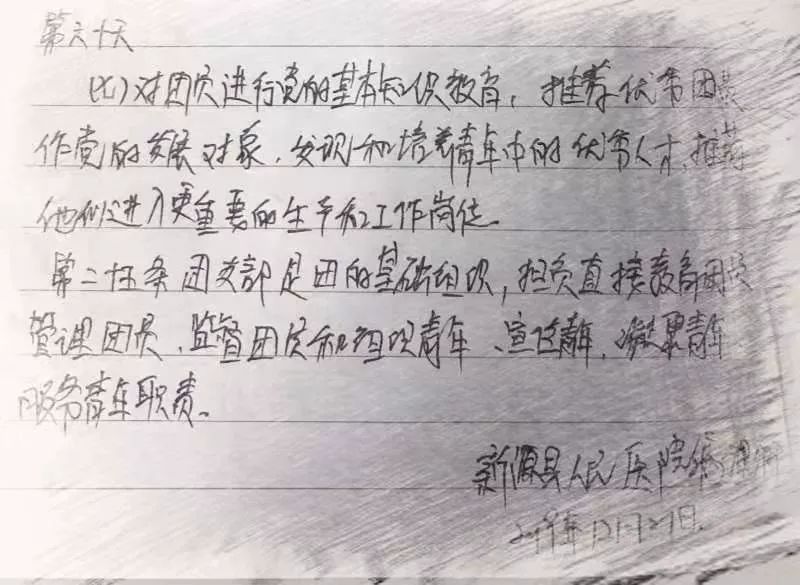 第六十天
(七)对团员进行党的基本知识教育,推荐优秀团员
作党的发展对象,发现和培养青年中的优秀人才,推荐
他们进入更重要的生产和工作岗位。
第二十五条 团支部是团的基础组织,担负直接教育团员
管理团员、监督团员和组织青年、宣传青年,凝聚青年
服务青年职责。
新源县人民医院
12月27日